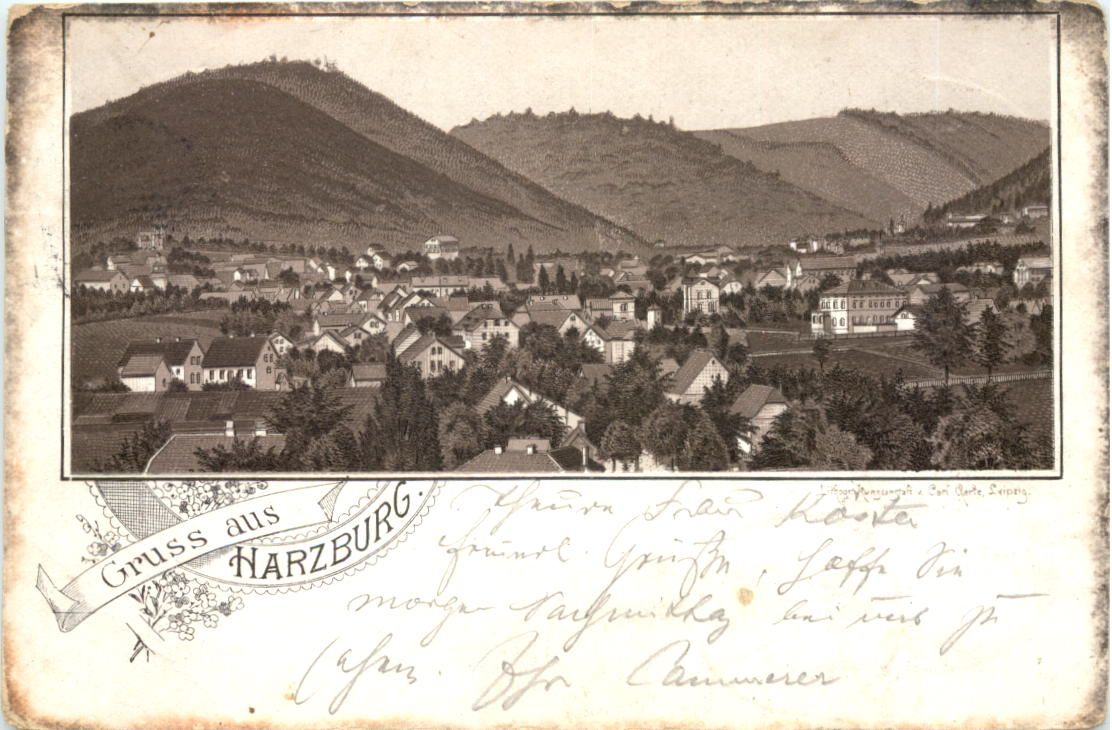 Lithogr. Kunstanstalt v. Carl Leipzig.
Gruss aus
HARZBURG.
Theure Frau
freundl. Grüße, hoffe Sie
morgen Nachmittag bei uns zu
sehen. Ihr Cammerer